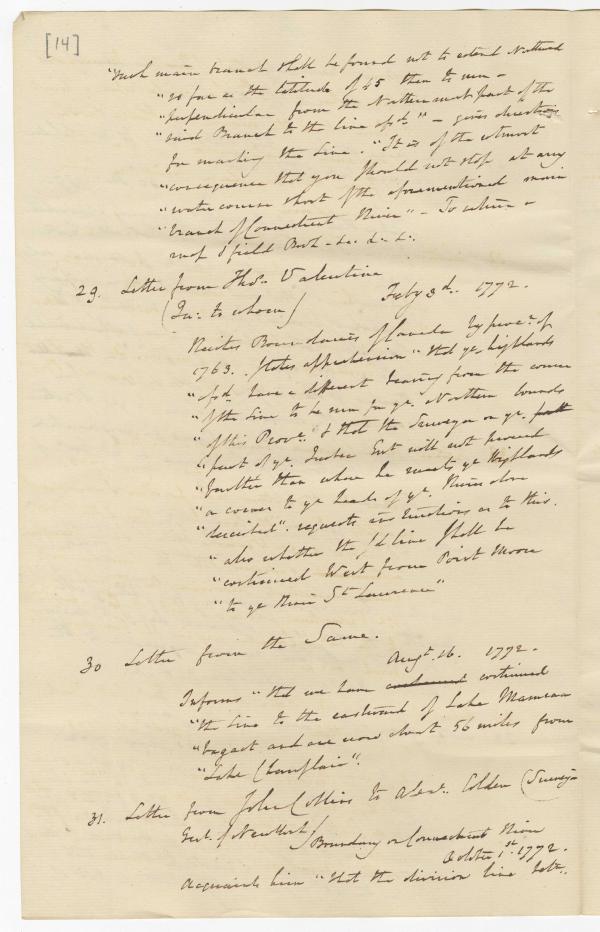 [14]
"such main branch shall be found not to extend Northward
"so far as the latitude of 45 then to run –
"perpendicular from the Northernmost part of the
"said Branch to the line afsd." – gives directions
for marking the Line. "It is of the utmost
"consequence that you should not stop at any
"water course short of the aforementioned main
"branch of Connecticut River" – To return a
map & field Book &c. &c. &c.
29. Letter from Thos. Valentine
(Qu: to whom) Feby 3d. 1772.
Recites Boundaries of Canada by procn. of
1763. States apprehension "that ye. highlands
"afsd. have a different bearing from the course
"of the Line to be run for ye. Northern bounds
"of this Prove. & that the Surveyor on ye. part
"part of ye. Quebec Govt will not proceed
"further than where he meets ye Highlands
"or corner to ye heads of ye. Rivers above
"recited". requests instructions as to this.
"also whether the sd line shall be
"continued West from Point Moore
"to ye River St Lawrence"
30 Letter from the Same.
Augt. 16. 1772.
Informs "that we have continued
"the Line to the eastward of Lake Mamrau
"bagact and are now about 56 miles from
"Lake Champlain".
31. Letter from John Collins to Alexr. Colden (Surveyor
Genl. of New York) Boundary on Connecticut River
October 1st. 1772.
Acquaints him "that the division line betn.